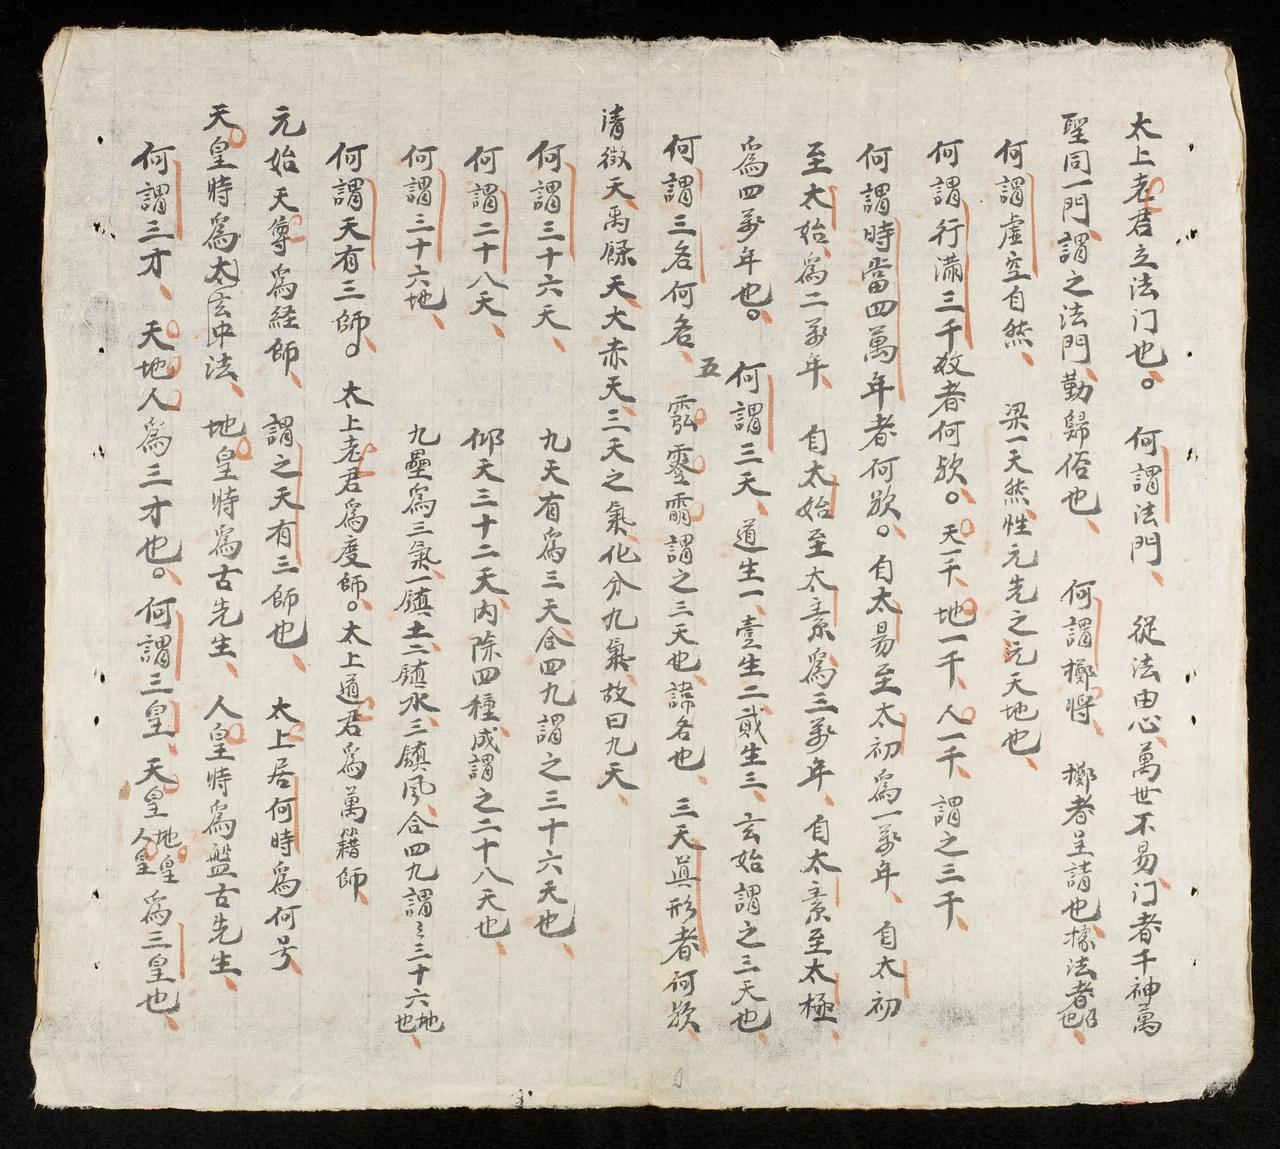 太上老君立法门也。何謂法門、從法由心、萬世不易、门者千神萬
聖同一門、謂之法門、勤歸俗也、何謂擲將、擲者呈請也、據法者召也、
何謂虛空自然、梁一天然性元先之元天地也、
何謂行滿三千数者何欤。天一千、地一千、人一千、謂之三千、
何謂時當四萬年者何欤。自太易至太初為一萬年、自太初
至太始、為二萬年、自太始至太素、為三萬年、自太素至太極
為四萬年也。何謂三天、道生一、壹生二、貮生三、玄始謂之三天也、
何謂三名何名、五 謂之三天也、諱名也、三天眞形者何欤、
清微天、禹餘天、大赤天、三天之氣、化分九氣、故曰九天、
何謂三十六天、九天有為三天合四九謂之三十六天也、
何謂二十八天、仰天三十二天內除四種、成謂之二十八天也、
何謂三十六地、九壘為三氣、一鎮土、二鎮水、三鎮風、合四九謂之三十六地也、
何謂天有三師。太上老君為度師。太上道君為萬籍師、
元始天尊為経師、謂之天有三師也、太上居何時為何号、
天皇時為太玄中法、地皇時為古先生、人皇時為盤古先生、
何謂三才、天地人為三才也。何謂三皇、天皇地皇人皇為三皇也、